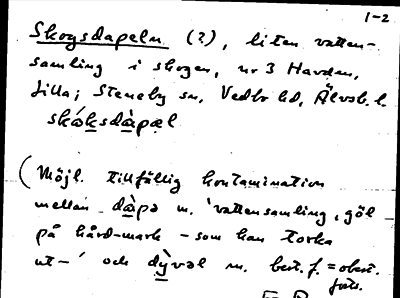 1-2
Skogsdapeln (?), liten vatten-
samling i skogen, nr 3 Havden,
Lilla; Steneby sn, Vedbo hd, Älvsb. l.
skåksdàpəl
(Möjl. tillfällig kontamination
mellan dàpə m. 'vattensamling, göl
på hård-mark – som kan torka
ut –' och dỳvəl m. best. f. = obest.